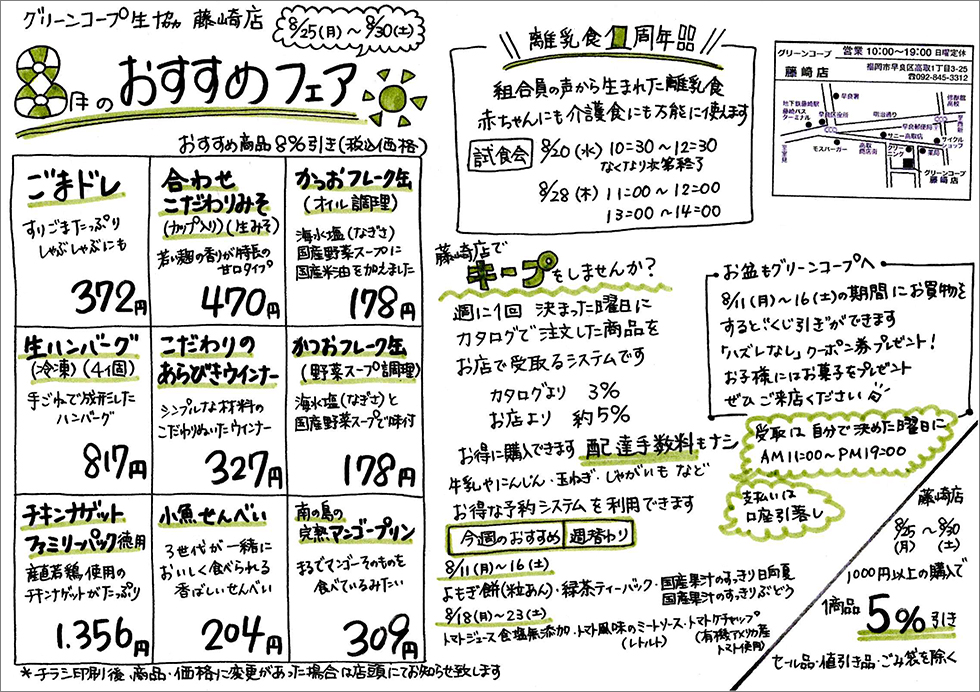 グリーンコープ生協 藤崎店
8/25(月)～8/30(土)
8月のおすすめフェア
おすすめ商品8%引き(税込価格)
ごまドレ
すりごまたっぷり
しゃぶしゃぶにも
372円
合わせ
こだわりみそ
(カップ入り)(生みそ)
若い麹の香りが特長の
甘口タイプ
470円
かつおフレーク缶
(オイル調理)
海水塩(なぎさ)
国産野菜スープに
国産米油を加えました
178円
生ハンバーグ
(冷凍)(4個)
手ごねで成形した
ハンバーグ
817円
こだわりの
あらびきウインナー
シンプルな材料の
こだわりぬいたウインナー
327円
かつおフレーク缶
(野菜スープ調理)
海水塩(なぎさ)と
国産野菜スープで味付
178円
チキンナゲット
ファミリーパック徳用
産直若鶏使用の
チキンナゲットがたっぷり
1.356円
小魚せんべい
3世代が一緒に
おいしく食べられる
香ばしいせんべい
204円
南の島の
完熟マンゴープリン
まるでマンゴーそのものを
食べているみたい
309円
*チラシ印刷後、商品・価格に変更があった場合は店頭にてお知らせ致します
離乳食1周年!!!
組合員の声から生まれた離乳食
赤ちゃんにも介護食にも万能に使えます
試食会
8/20(水) 10=30～12=30
なくなり次第終了
8/28(木) 11=00～12=00
13=00～14=00
グリーンコープ
藤崎店
営業 10:00～19:00 日曜定休
福岡市早良区高取1丁目3-25
☎092-845-3312
早良署
地下鉄藤崎駅
藤崎バス
ターミナル
早良区役所
明治通り
早良郵便局
修猷館
高校
サニー高取店
サイクル
ショップ
モスバーガー
高取
商店街
クリーニング
薬局
グリーンコープ
藤崎店
藤崎店で
キープをしませんか?
週に1回 決まった曜日に
カタログで注文した商品を
お店で受取るシステムです
カタログより 3%
お店より 約5%
お得に購入できます 配達手数料もナシ
牛乳やにんじん・玉ねぎ・じゃがいも など
お得な予約システムを利用できます
受取は自分で決めた曜日に
AM11=00～PM19=00
支払いは
口座引落し
今週のおすすめ 週替わり
8/11(月)～16(土)
よもぎ餅(粒あん)・緑茶ティーバック・国産果汁のすっきり日向夏
国産果汁のすっきりぶどう
8/18(月)～23(土)
トマトジュース食塩無添加・トマト風味のミートソース・トマトケチャップ
(レトルト)
(有機アメリカ産
トマト使用)
お盆もグリーンコープへ
8/11(月)～16(土)の期間にお買物を
すると“くじ引き”ができます
「ハズレなし」クーポン券プレゼント!
お子様にはお菓子をプレゼント
ぜひご来店ください
藤崎店
8/25(月)～8/30(土)
1000円以上の購入で
1商品5%引き
セール品・値引き品・ごみ袋を除く